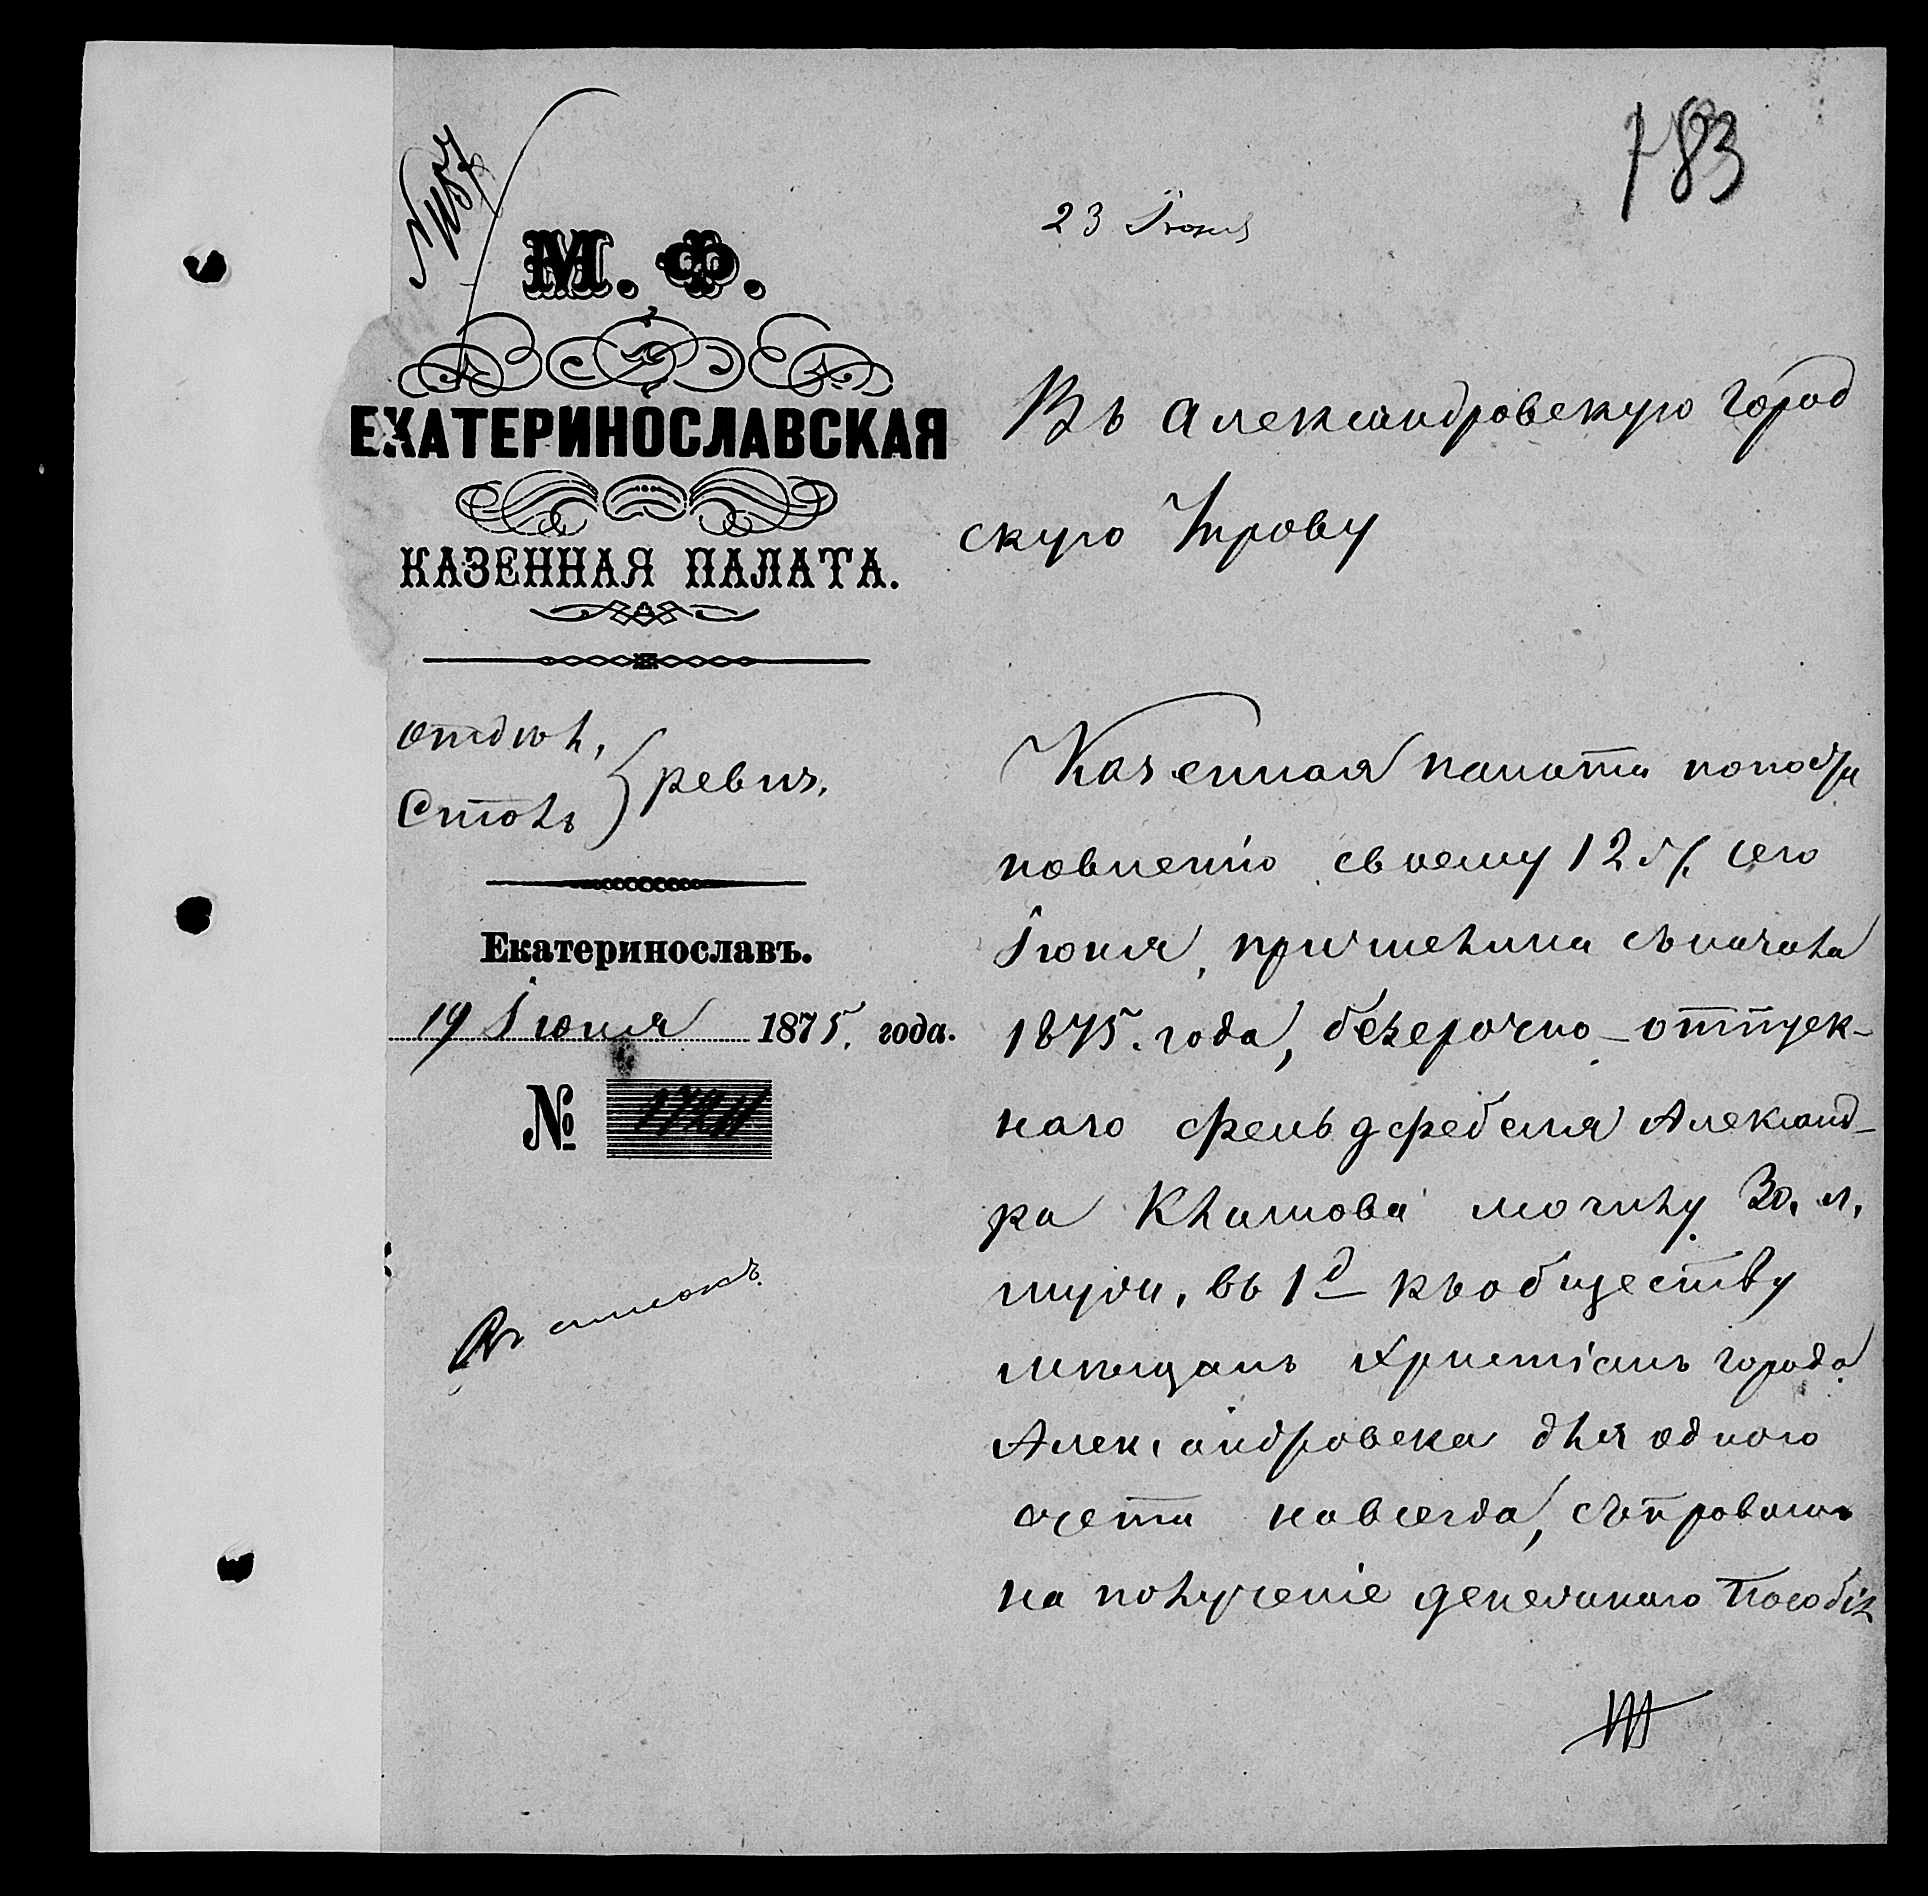 783
№ 1157
23 Іюня
М. Ф.
ЕКАТЕРИНОСЛАВСКАЯ
КАЗЕННАЯ ПАЛАТА.
Отдѣл.
Столъ } ревиз.
Екатеринославъ.
19 Іюня 1875. года.
№
Въ списокъ
Въ Александровскую Город
скую Управу
Казенная палата по поста
новленію своему 12 сего
Іюня, причислила съ начала
1875. года, безсрочно-отпуск-
наго фельдфебеля Александ-
ра Климова 30. л.
въ 1 д къ обществу
мѣщанъ христіанъ города
Александровска для одного
счета навсегда, съ правомъ
на полученіе денежнаго пособія